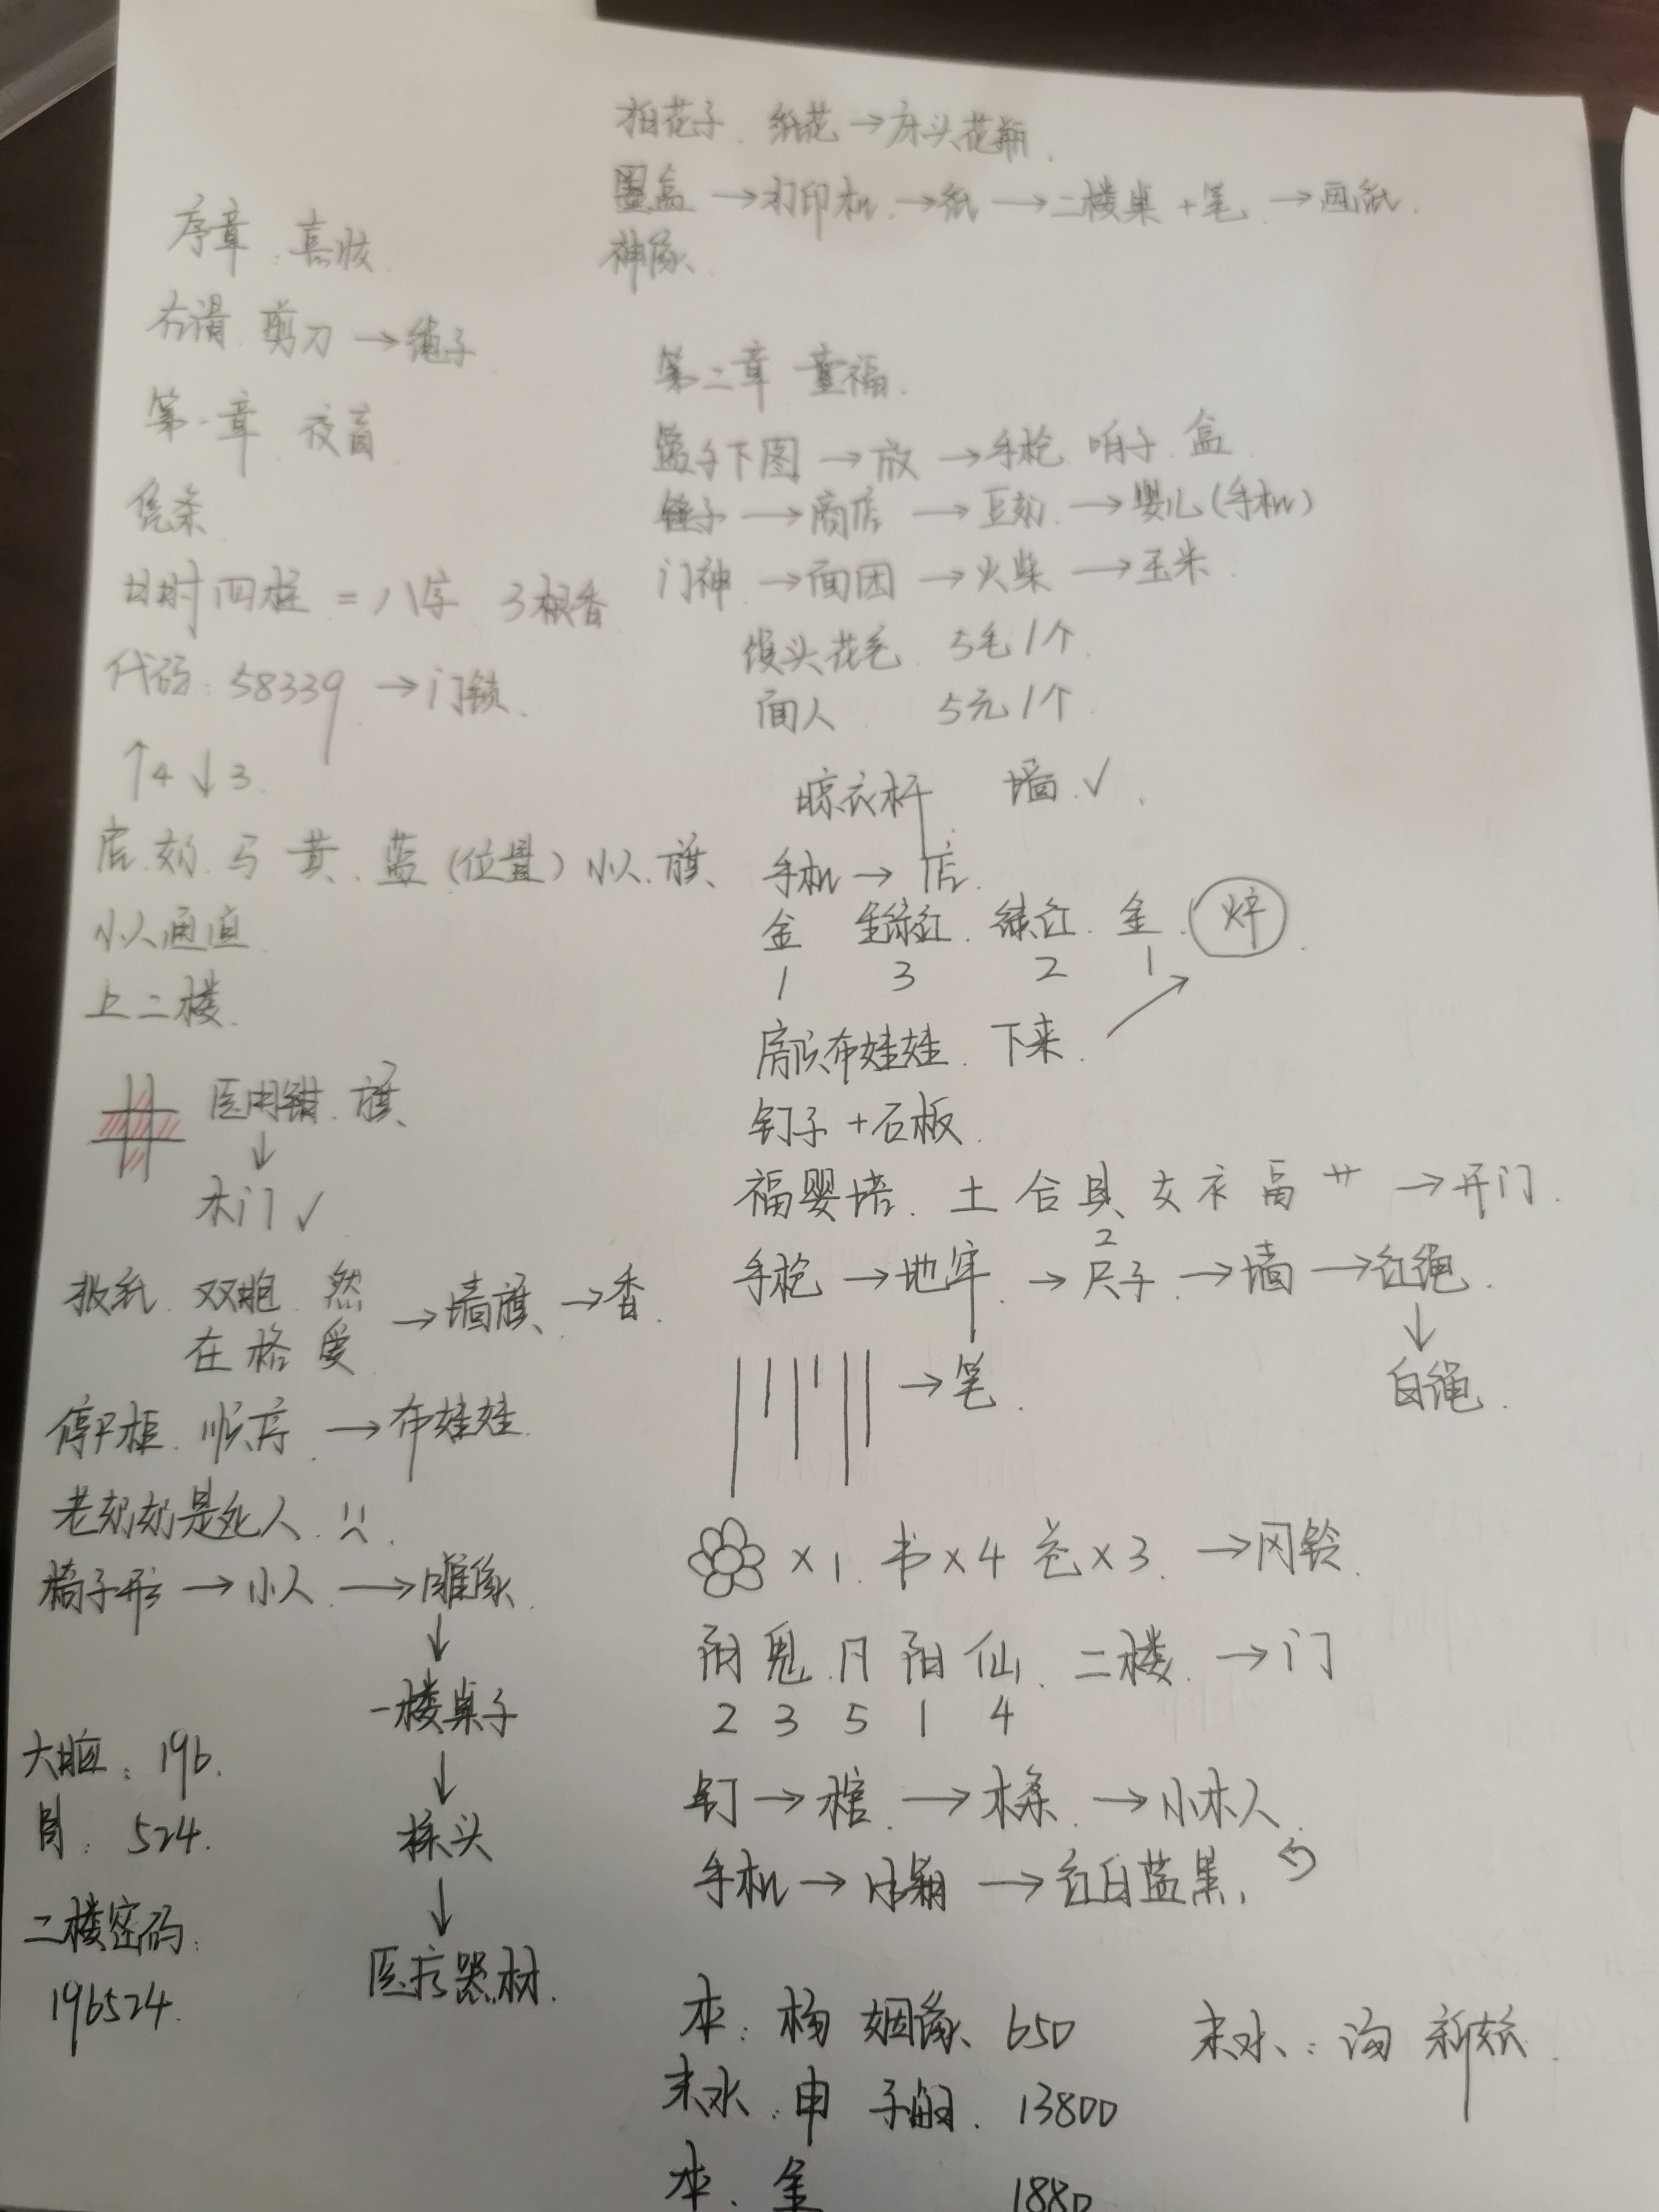 序章:喜妆.
右滑.剪刀→绳子
第一章 夜盲.
凭条.
日时四柱=八字 3根香
代码:58339→门锁.
↑4↓3.
店.奶.马 黄.蓝(位置)小人.旗
小人通道
上二楼.
医用钳.旗
↓
木门✓
报纸.双抱.然
在格爱
→墙旗→香.
停尸柜.顺序.→布娃娃.
老奶奶是死人.
椅子形→小人→雕像.
↓
一楼桌子
↓
探头
↓
医疗器材.
大脑:196.
胃:524.
二楼密码:
196524.
拍花子.纸花→床头花瓶.
墨盒→打印机→纸→二楼桌+笔→画纸.
神像.
第二章 童福.
篮子下图→放→手枪.哨子.盒
锤子→商店→豆奶→婴儿(手机)
门神→面团→火柴→玉米.
馒头花毛 5毛1个.
面人 5元1个.
晾衣杆 墙.✓.
手机→店.
金 金绿红.绿红.金.
1 3 2 1
房顶布娃娃.下来.
钉子+石板.
福婴塔.土合具女衣畐艹→开门.
2
手枪→地牢→尺子→墙→红绳.
↓
白绳.
→笔.
×1.书×4 ×3.→风铃.
阴鬼月阳仙.二楼.→门
2 3 5 1 4
钉→棺→木条→小木人.
手机→ →红白蓝黑.
本:杨 姻缘.650
末水:申 子嗣.13800
本.金 1880
末水:海 新妓.